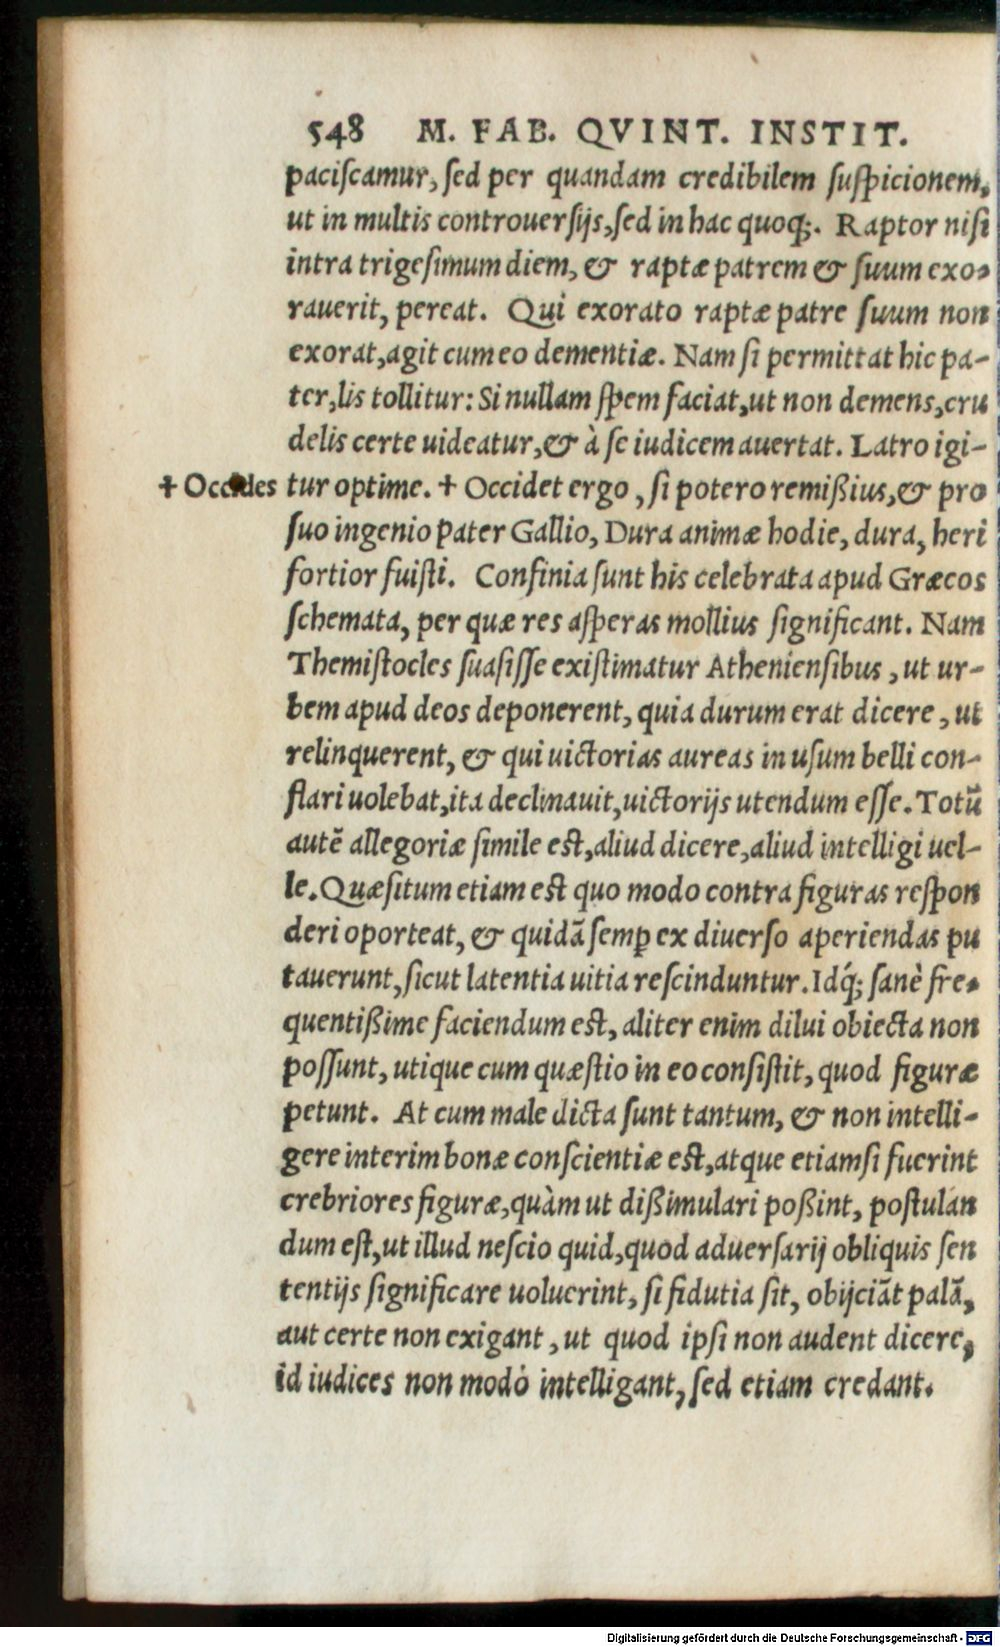 548 M. FAB. QVINT. INSTIT.
paciscamur, sed per quandam credibilem suspicionem,
ut in multis controuersijs, sed in hac quoq;. Raptor nisi
intra trigesimum diem, & raptæ patrem & suum exo-
rauerit, pereat. Qui exorato raptæ patre suum non
exorat, agit cum eo dementiæ. Nam si permittat hic pa-
ter, lis tollitur: Si nullam spem faciat, ut non demens, cru
delis certe uideatur, & à se iudicem auertat. Latro igi-
✝ Occides tur optime. ✝ Occidet ergo, si potero remißius, & pro
suo ingenio pater Gallio, Dura animæ hodie, dura, heri
fortior fuisti. Confinia sunt his celebrata apud Græcos
schemata, per quæ res asperas mollius significant. Nam
Themistocles suasisse existimatur Atheniensibus, ut ur-
bem apud deos deponerent, quia durum erat dicere, ut
relinquerent, & qui uictorias aureas in usum belli con-
flari uolebat, ita declinauit, uictorijs utendum esse. Totũ
autẽ allegoriæ simile est, aliud dicere, aliud intelligi uel-
le. Quæsitum etiam est quo modo contra figuras respon
deri oporteat, & quidã semꝑ ex diuerso aperiendas pu
tauerunt, sicut latentia uitia rescinduntur. Idq́; sanè fre-
quentißime faciendum est, aliter enim dilui obiecta non
possunt, utique cum quæstio in eo consistit, quod figuræ
petunt. At cum male dicta sunt tantum, & non intelli-
gere interim bonæ conscientiæ est, atque etiamsi fuerint
crebriores figuræ, quàm ut dißimulari poßint, postulan
dum est, ut illud nescio quid, quod aduersarij obliquis sen
tentijs significare uoluerint, si fidutia sit, obijciãt palã,
aut certe non exigant, ut quod ipsi non audent dicere,
id iudices non modò intelligant, sed etiam credant.
Digitalisierung gefördert durch die Deutsche Forschungsgemeinschaft - DFG